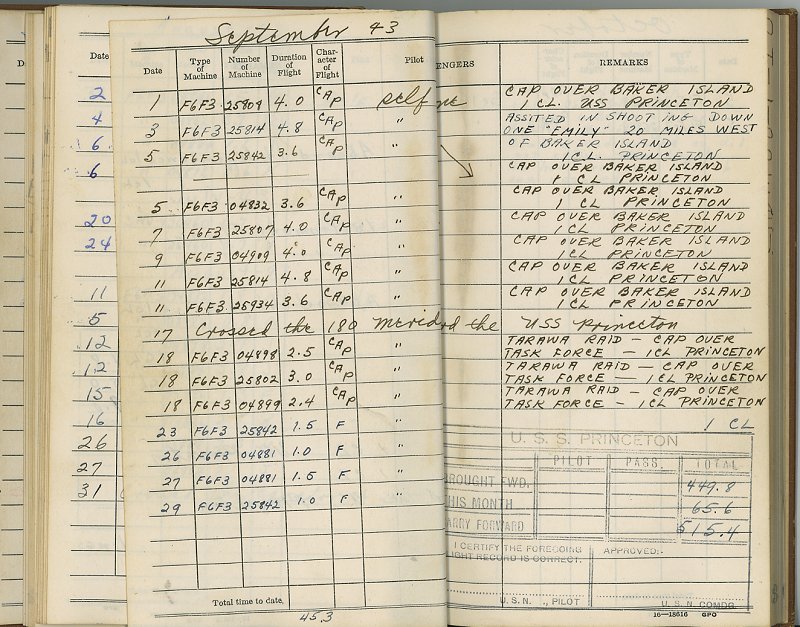 September 43
October
Date
2
4
6
6
20
24
11
5
12
12
15
16
26
27
31
Date Type of Machine Number of Machine Duration of Flight Char- acter of Flight Pilot ENGERS REMARKS
1 F6F3 25809 4.0 CAP self CAP OVER BAKER ISLAND
1 CL. USS PRINCETON
3 F6F3 25814 4.8 CAP " ASSITED IN SHOOTING DOWN
ONE "EMILY" 20 MILES WEST
5 F6F3 25842 3.6 CAP " OF BAKER ISLAND
1 CL. PRINCETON
CAP OVER BAKER ISLAND
1 CL PRINCETON
5 F6F3 04832 3.6 CAP " CAP OVER BAKER ISLAND
1 CL PRINCETON
7 F6F3 25807 4.0 CAP " CAP OVER BAKER ISLAND
1 CL PRINCETON
9 F6F3 04909 4.0 CAP " CAP OVER BAKER ISLAND
1 CL PRINCETON
11 F6F3 25814 4.8 CAP " CAP OVER BAKER ISLAND
1 CL PRINCETON
11 F6F3 25934 3.6 CAP " CAP OVER BAKER ISLAND
1 CL PRINCETON
17 Crossed the 180 Merid the USS Princeton
18 F6F3 04898 2.5 CAP " TARAWA RAID - CAP OVER
TASK FORCE - 1 CL PRINCETON
18 F6F3 25802 3.0 CAP TARAWA RAID - CAP OVER
TASK FORCE - 1 CL PRINCETON
18 F6F3 04899 2.4 CAP " TARAWA RAID - CAP OVER
TASK FORCE - 1 CL PRINCETON
23 F6F3 25842 1.5 F " 1 CL
26 F6F3 04881 1.0 F "
27 F6F3 04881 1.5 F "
29 F6F3 25842 1.0 F "
U.S.S. PRINCETON
PILOT PASS. TOTAL
ROUGHT FWD. 449.8
HIS MONTH 65.6
ARRY FORWARD 515.4
I CERTIFY THE FOREGOING
LIGHT RECORD IS CORRECT.
APPROVED:-
U.S.N. ., PILOT U.S.N. COMDG.
Total time to date,
453
16—18616 GPO